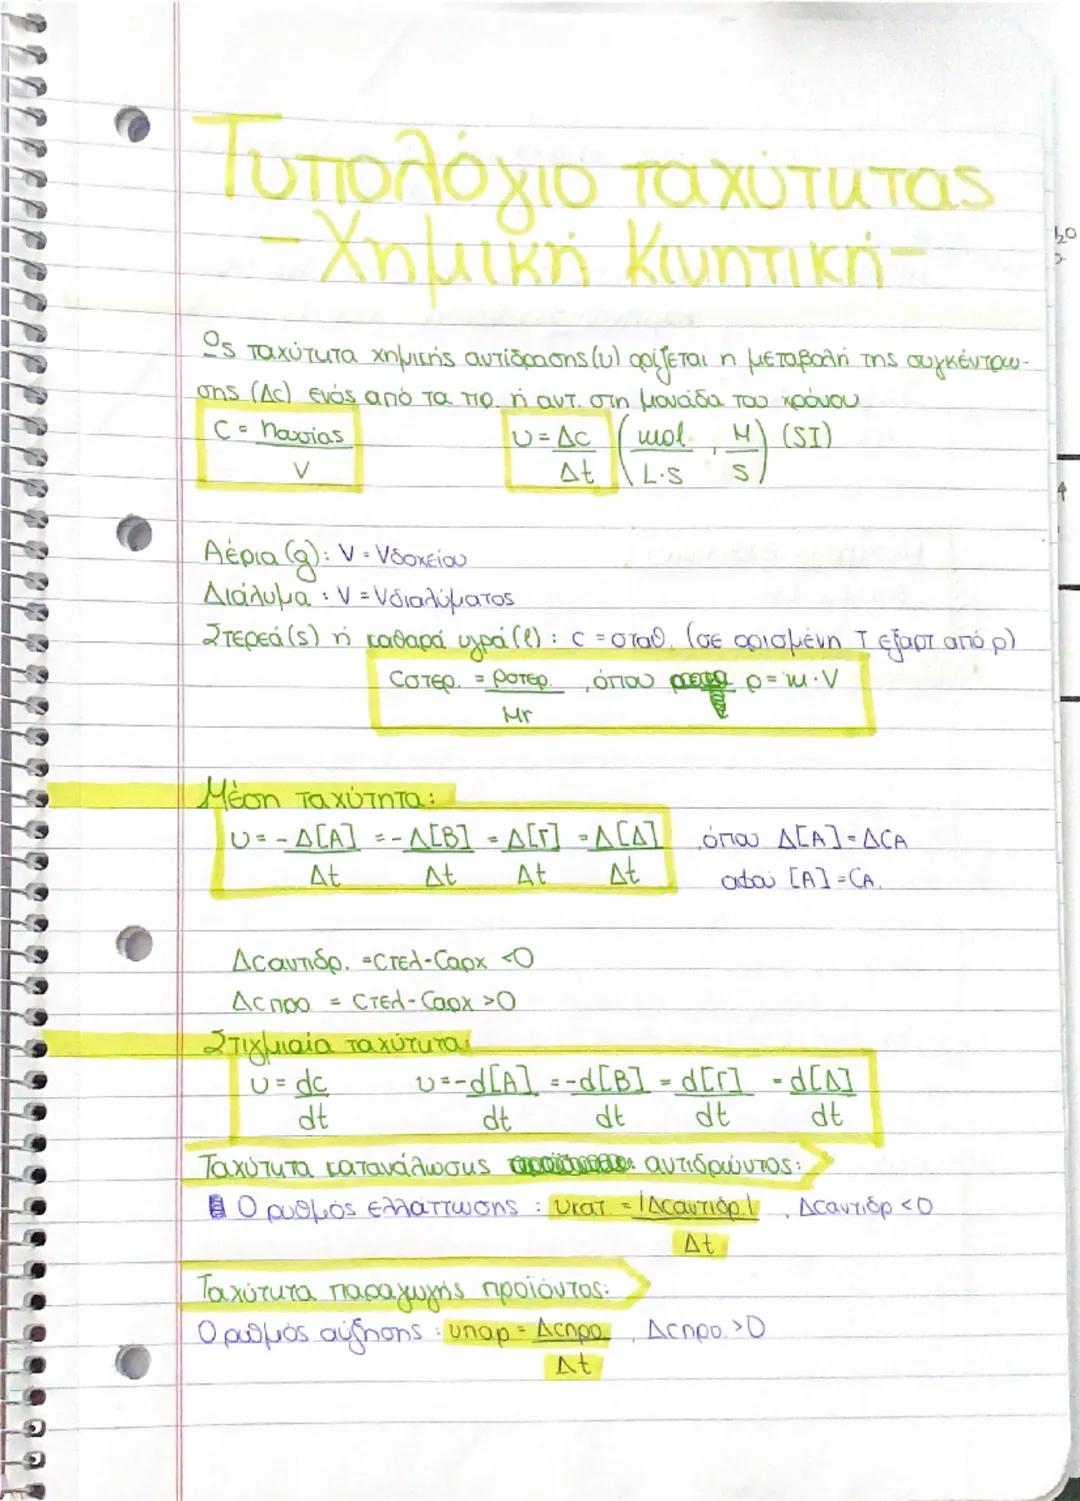 Τυπολόγιο ταχύτυτας
- Χημική Κινητική -
Ως ταχύτυτα χημικής αντίδρασης (υ) ορίζεται η μεταβολή της συγκέντρω-
σης (Δc) ενός από τα πρ. ή αντ. στη μονάδα του χρόνου
C = nουσίας / V υ = Δc / Δt (mol / L·s , M / s) (SI)
Αέρια (g): V = Vδοχείου
Διάλυμα : V = Vδιαλύματος
Στερεά (s) ή καθαρά υγρά (l) : c = σταθ. (σε ορισμένη T εξαρτ από ρ)
Cστερ. = ρστερ. / Mr , όπου ρ = m·V
Μέση ταχύτητα:
υ = - Δ[A] / Δt = - Δ[B] / Δt = Δ[Γ] / Δt = Δ[Δ] / Δt , όπου Δ[A] = ΔCA
αφού [A] = CA.
Δcαντιδρ. = cτελ - cαρχ < 0
Δcπρο = cτελ - cαρχ > 0
Στιγμιαία ταχύτυτα:
υ = dc / dt υ = - d[A] / dt = - d[B] / dt = d[Γ] / dt = d[Δ] / dt
Ταχύτυτα κατανάλωσυς αντιδρώντος:
Ο ρυθμός ελλάττωσης : υκατ = |Δcαντιδρ.| / Δt , Δcαντιδρ < 0
Ταχύτυτα παραγωγής προϊόντος:
Ο ρυθμός αύξησης : υπαρ = Δcπρο. / Δt , Δcπρο. > 0